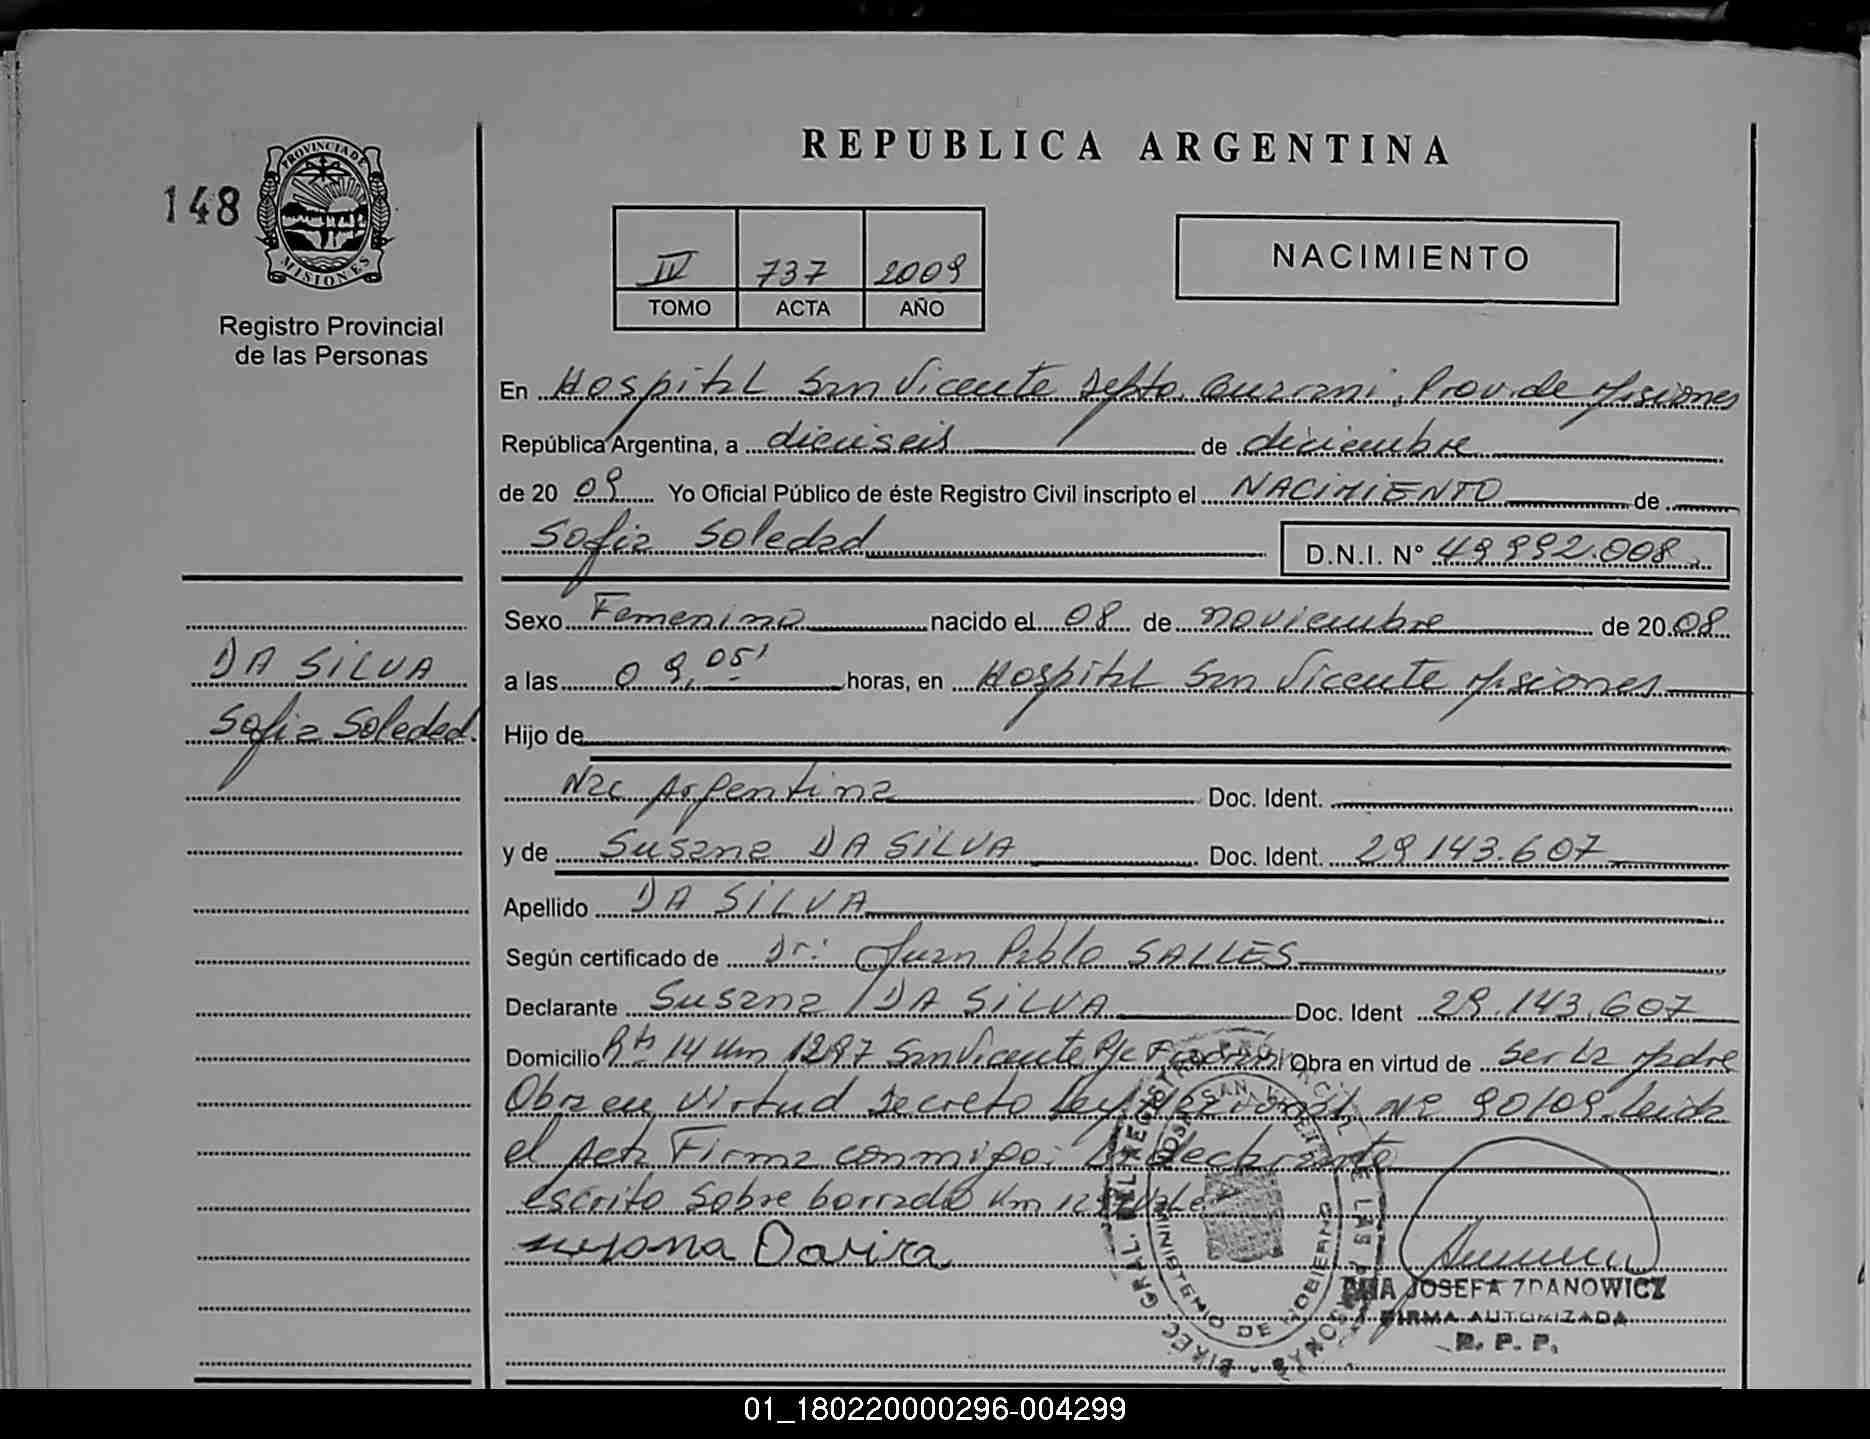 REPUBLICA ARGENTINA
148
PROVINCIA DE
MISIONES
Registro Provincial
de las Personas
IV 737 2009
TOMO ACTA AÑO
NACIMIENTO
En Hospital San Vicente Depto. Guarani, Prov. de Misiones
República Argentina, a dieciseis de diciembre
de 20 09 Yo Oficial Público de éste Registro Civil inscripto el NACIMIENTO de
Sofia Soledad D.N.I. N° 49992.008
Sexo Femenino nacido el 08 de noviembre de 20 08
DA SILVA
Sofia Soledad.
a las 09,05' horas, en Hospital San Vicente Misiones
Hijo de
Nac Argentina Doc. Ident.
y de Susana DA SILVA Doc. Ident. 29 143.607
Apellido DA SILVA
Según certificado de Dr: Juan Pablo SALLES
Declarante Susana DA SILVA Doc. Ident 29.143.607
Domicilio Rta 14 Km 1297 San Vicente Obra en virtud de ser la Madre
Obra en virtud Decreto Ley Nacional Nº 90/09 Leida
el Acta Firma conmigo: La declarante
escrito sobre borrado Km 1297 Vale
DIREC GRAL. DEL REGISTRO PROVINCIAL DE LAS PERSONAS
HOSP. SAN VICENTE
MINISTERIO DE GOBIERNO
ANA JOSEFA ZDANOWICZ
FIRMA AUTORIZADA
R. P. P.
01_180220000296-004299